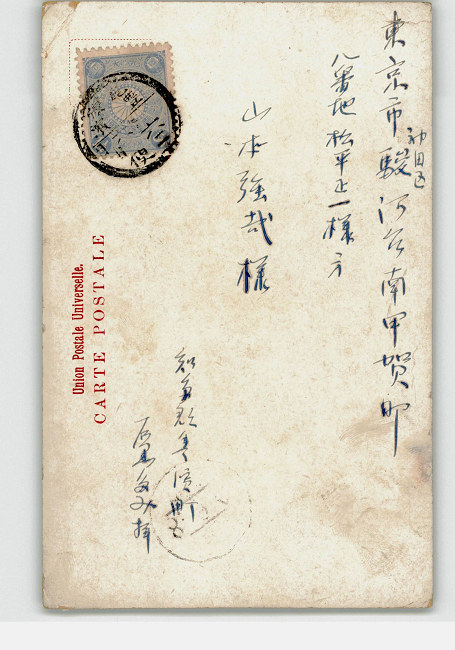 東京市神田区駿河台南甲賀町
八番地松平正一様方
山本強哉様
知多郡
Union Postale Universelle.
CARTE POSTALE